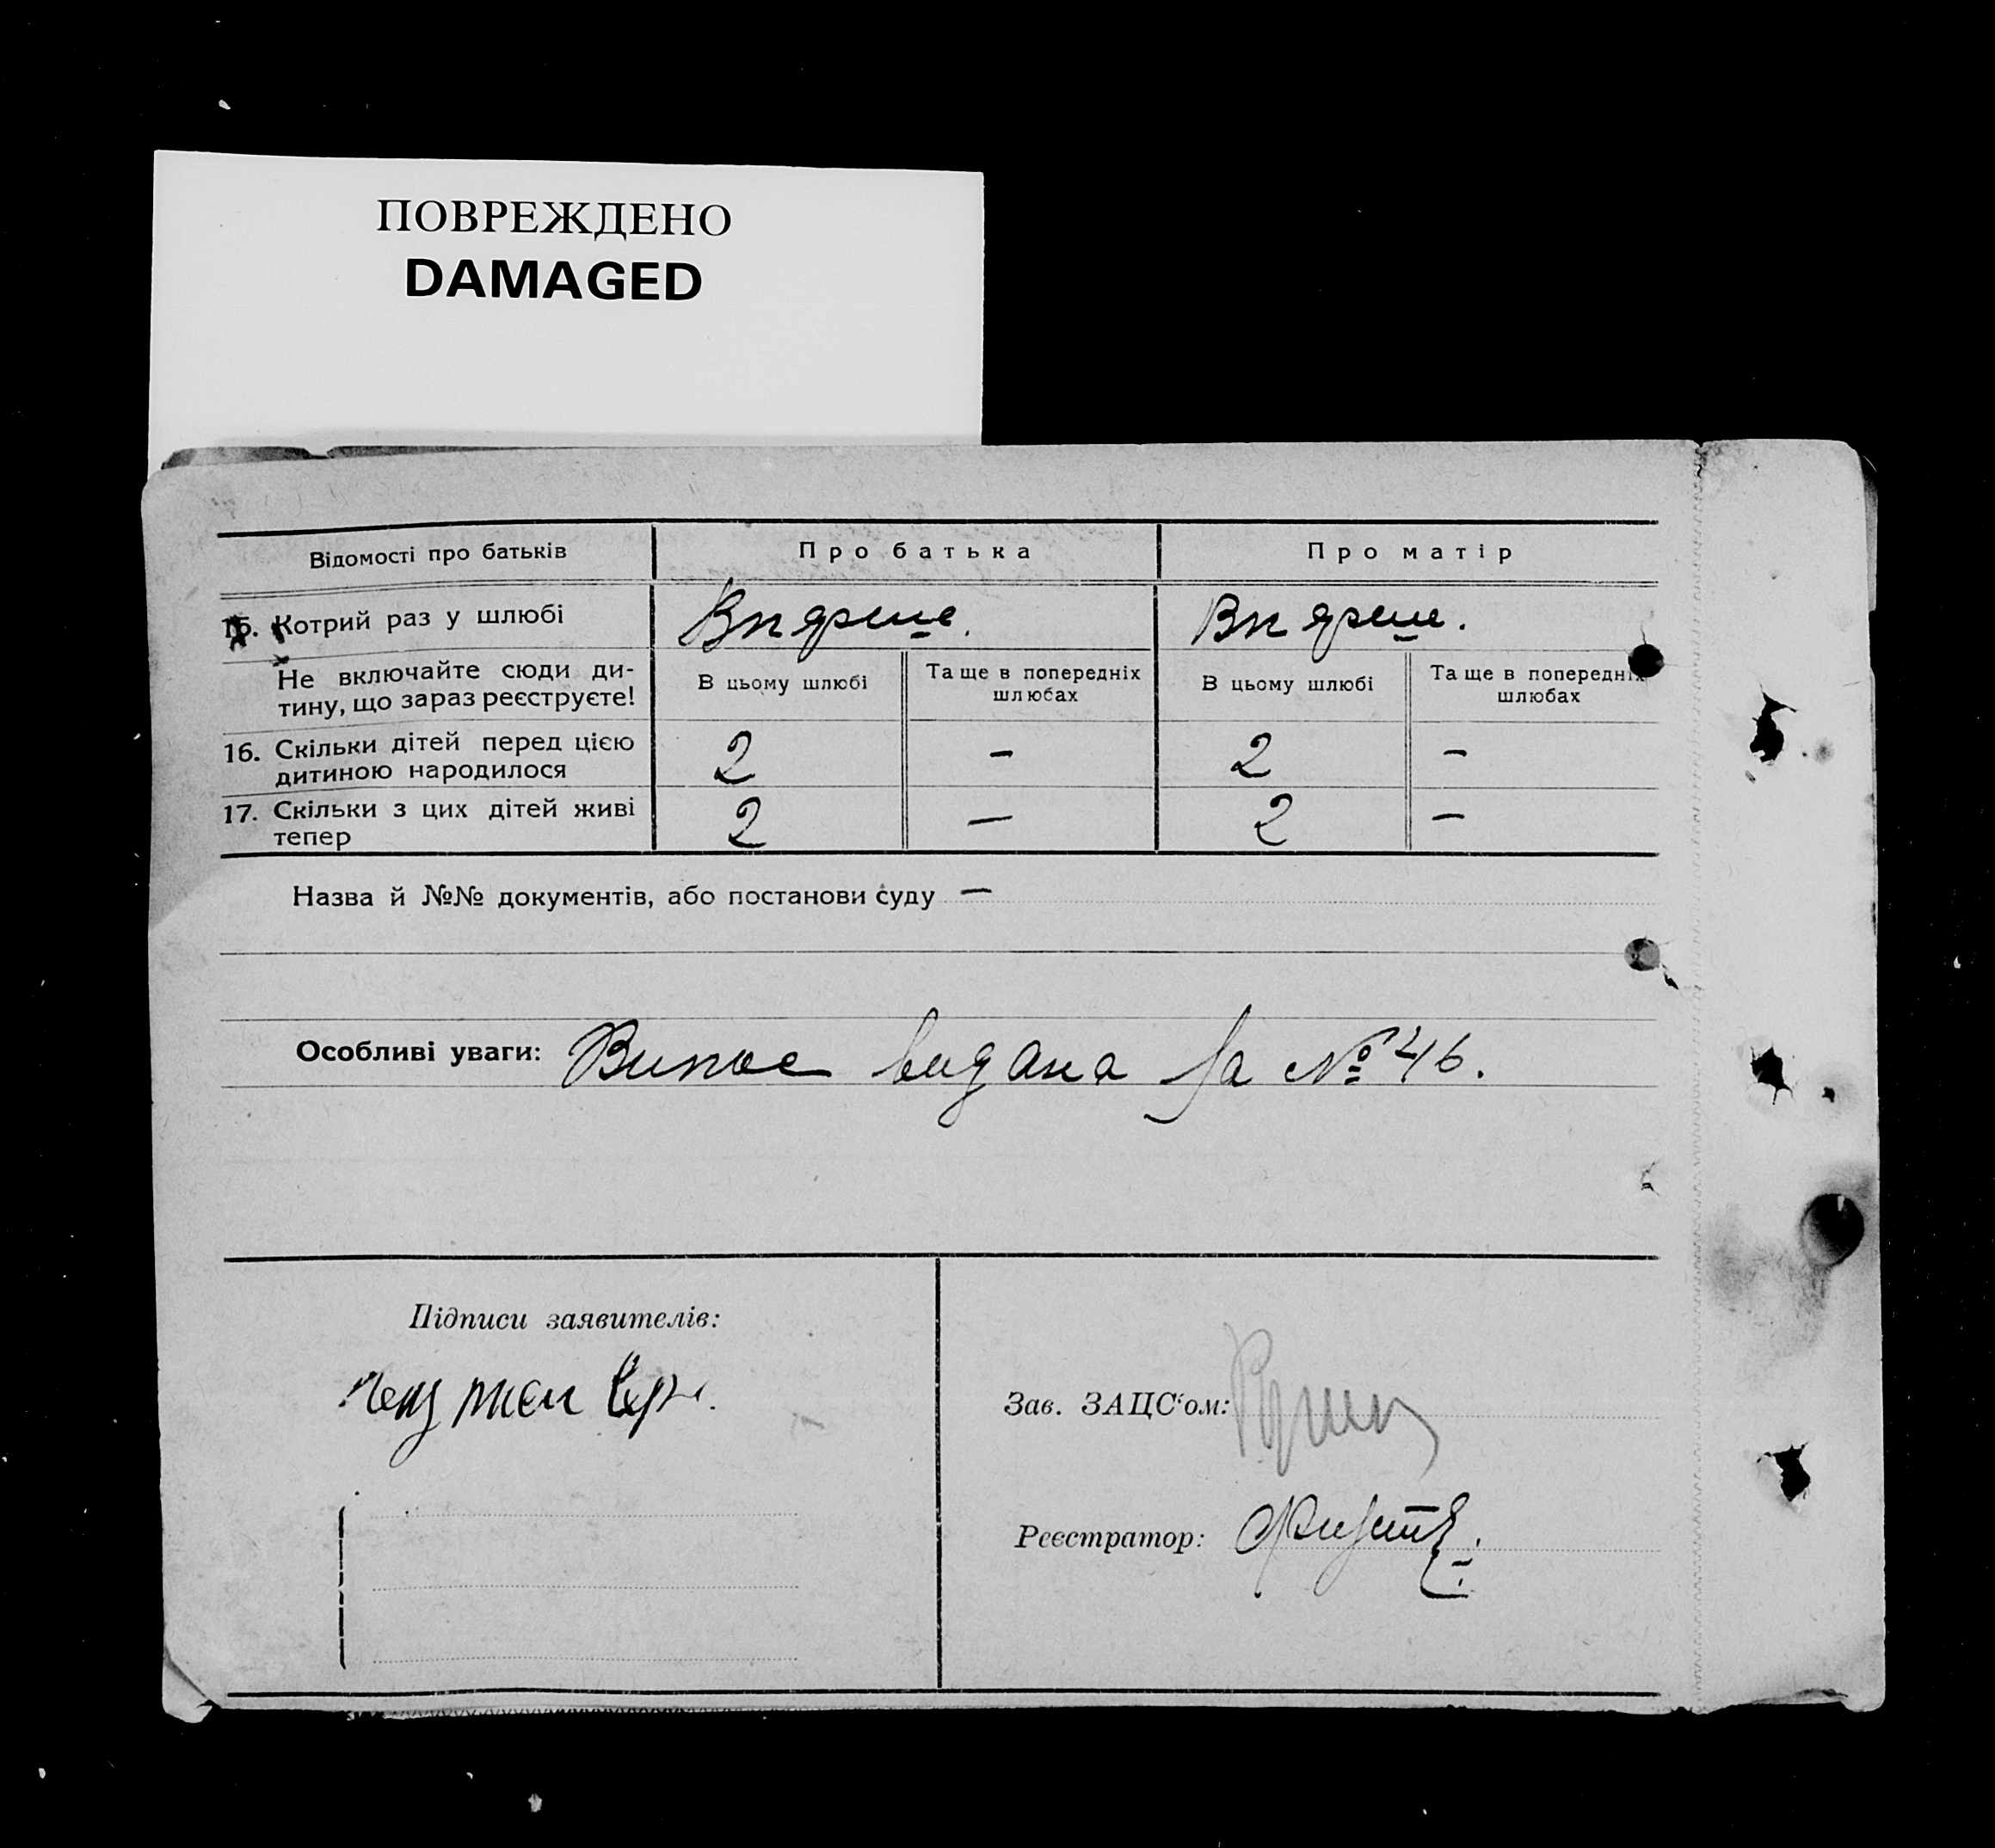 ПОВРЕЖДЕНО
DAMAGED
Відомості про батьків
Про батька
Про матір
15. Котрий раз у шлюбі
Вперше.
Вперше.
Не включайте сюди ди-
тину, що зараз реєструєте!
В цьому шлюбі
Та ще в попередніх
шлюбах
В цьому шлюбі
Та ще в попередніх
шлюбах
16. Скільки дітей перед цією
дитиною народилося
2
–
2
–
17. Скільки з цих дітей живі
тепер
2
–
2
–
Назва й №№ документів, або постанови суду –
Особливі уваги: Випис видана за № 46.
Підписи заявителів:
Зав. ЗАЦС‘ом:
Реєстратор: